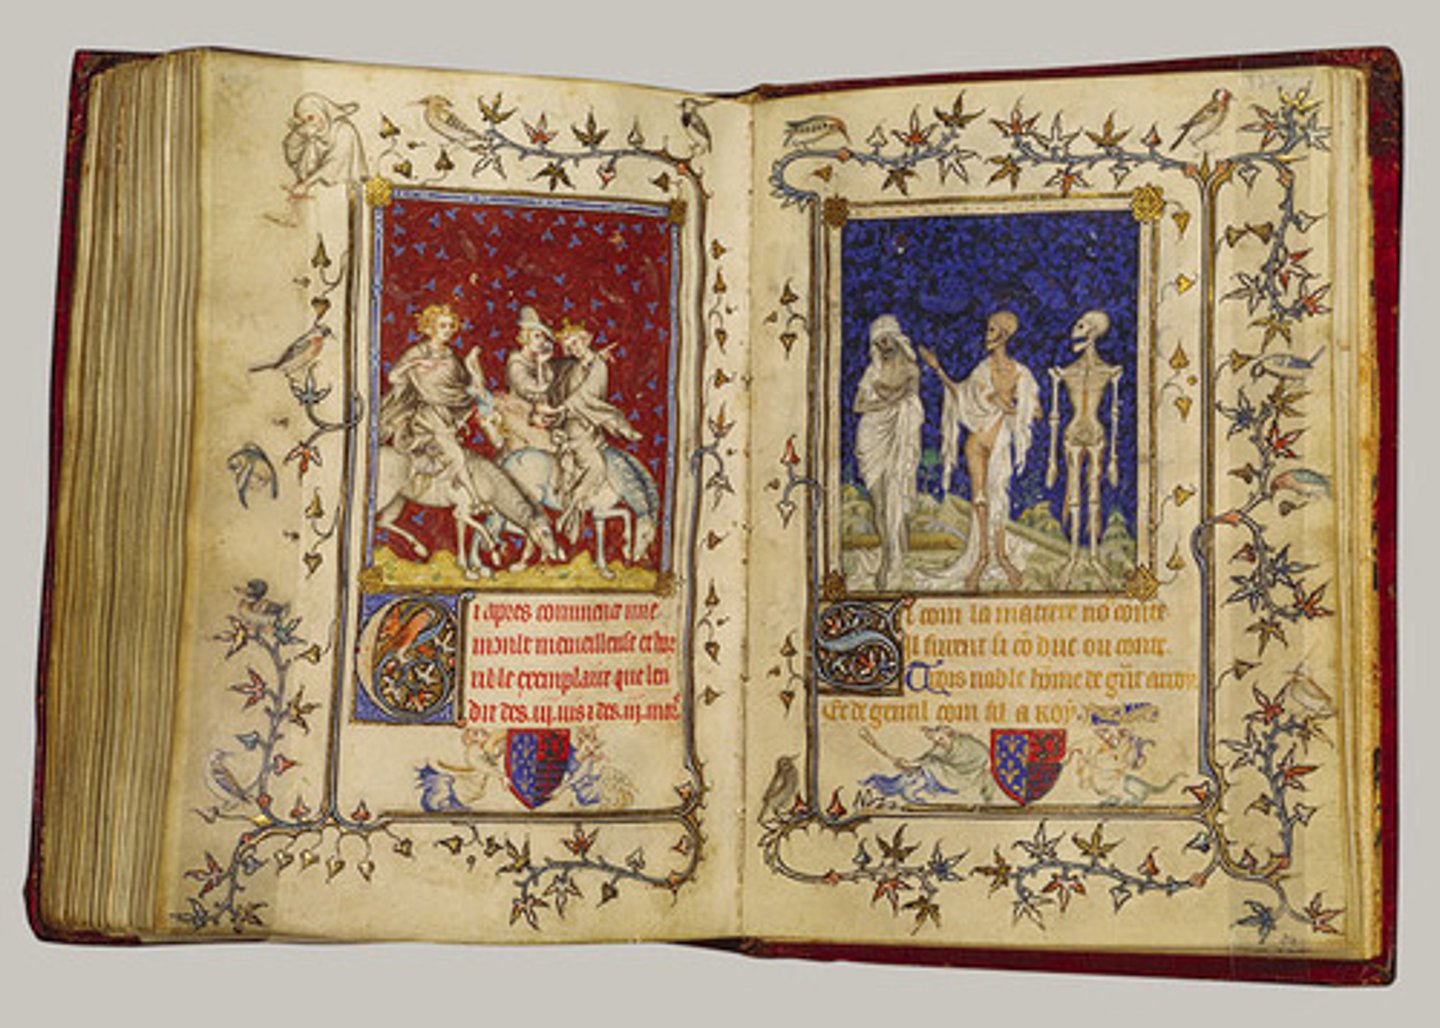 Ci apres commence une
moult merueilleuse et hor
rible exemplaire que len
dit des .iij. uis ⁊ des .iij. mors
Si com la matiere nō conte
Il furent si cō duc ou conte.
Trois noble hōme de gnt arroy
Et de gentil com fil a roy.